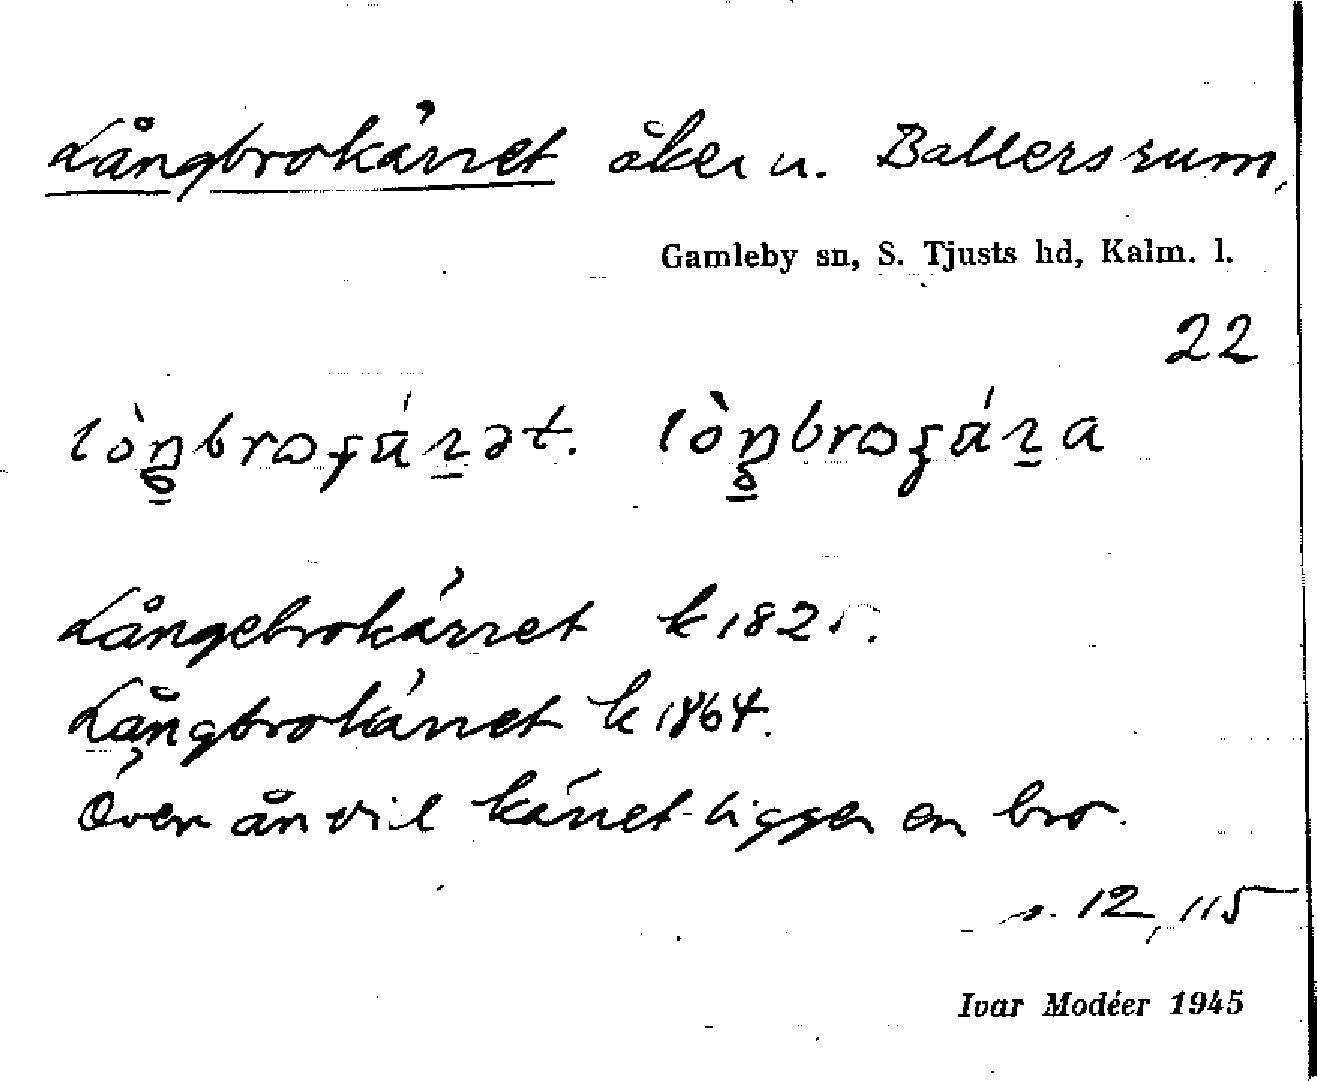 Långbrokärret åker u. Ballersrum,
Gamleby sn, S. Tjusts hd, Kalm. l.
22
Långebrokärret k 1825.
Långbrokärret k 1864.
Över ån vid kärret ligger en bro.
s. 12, 115
Ivar Modéer 1945